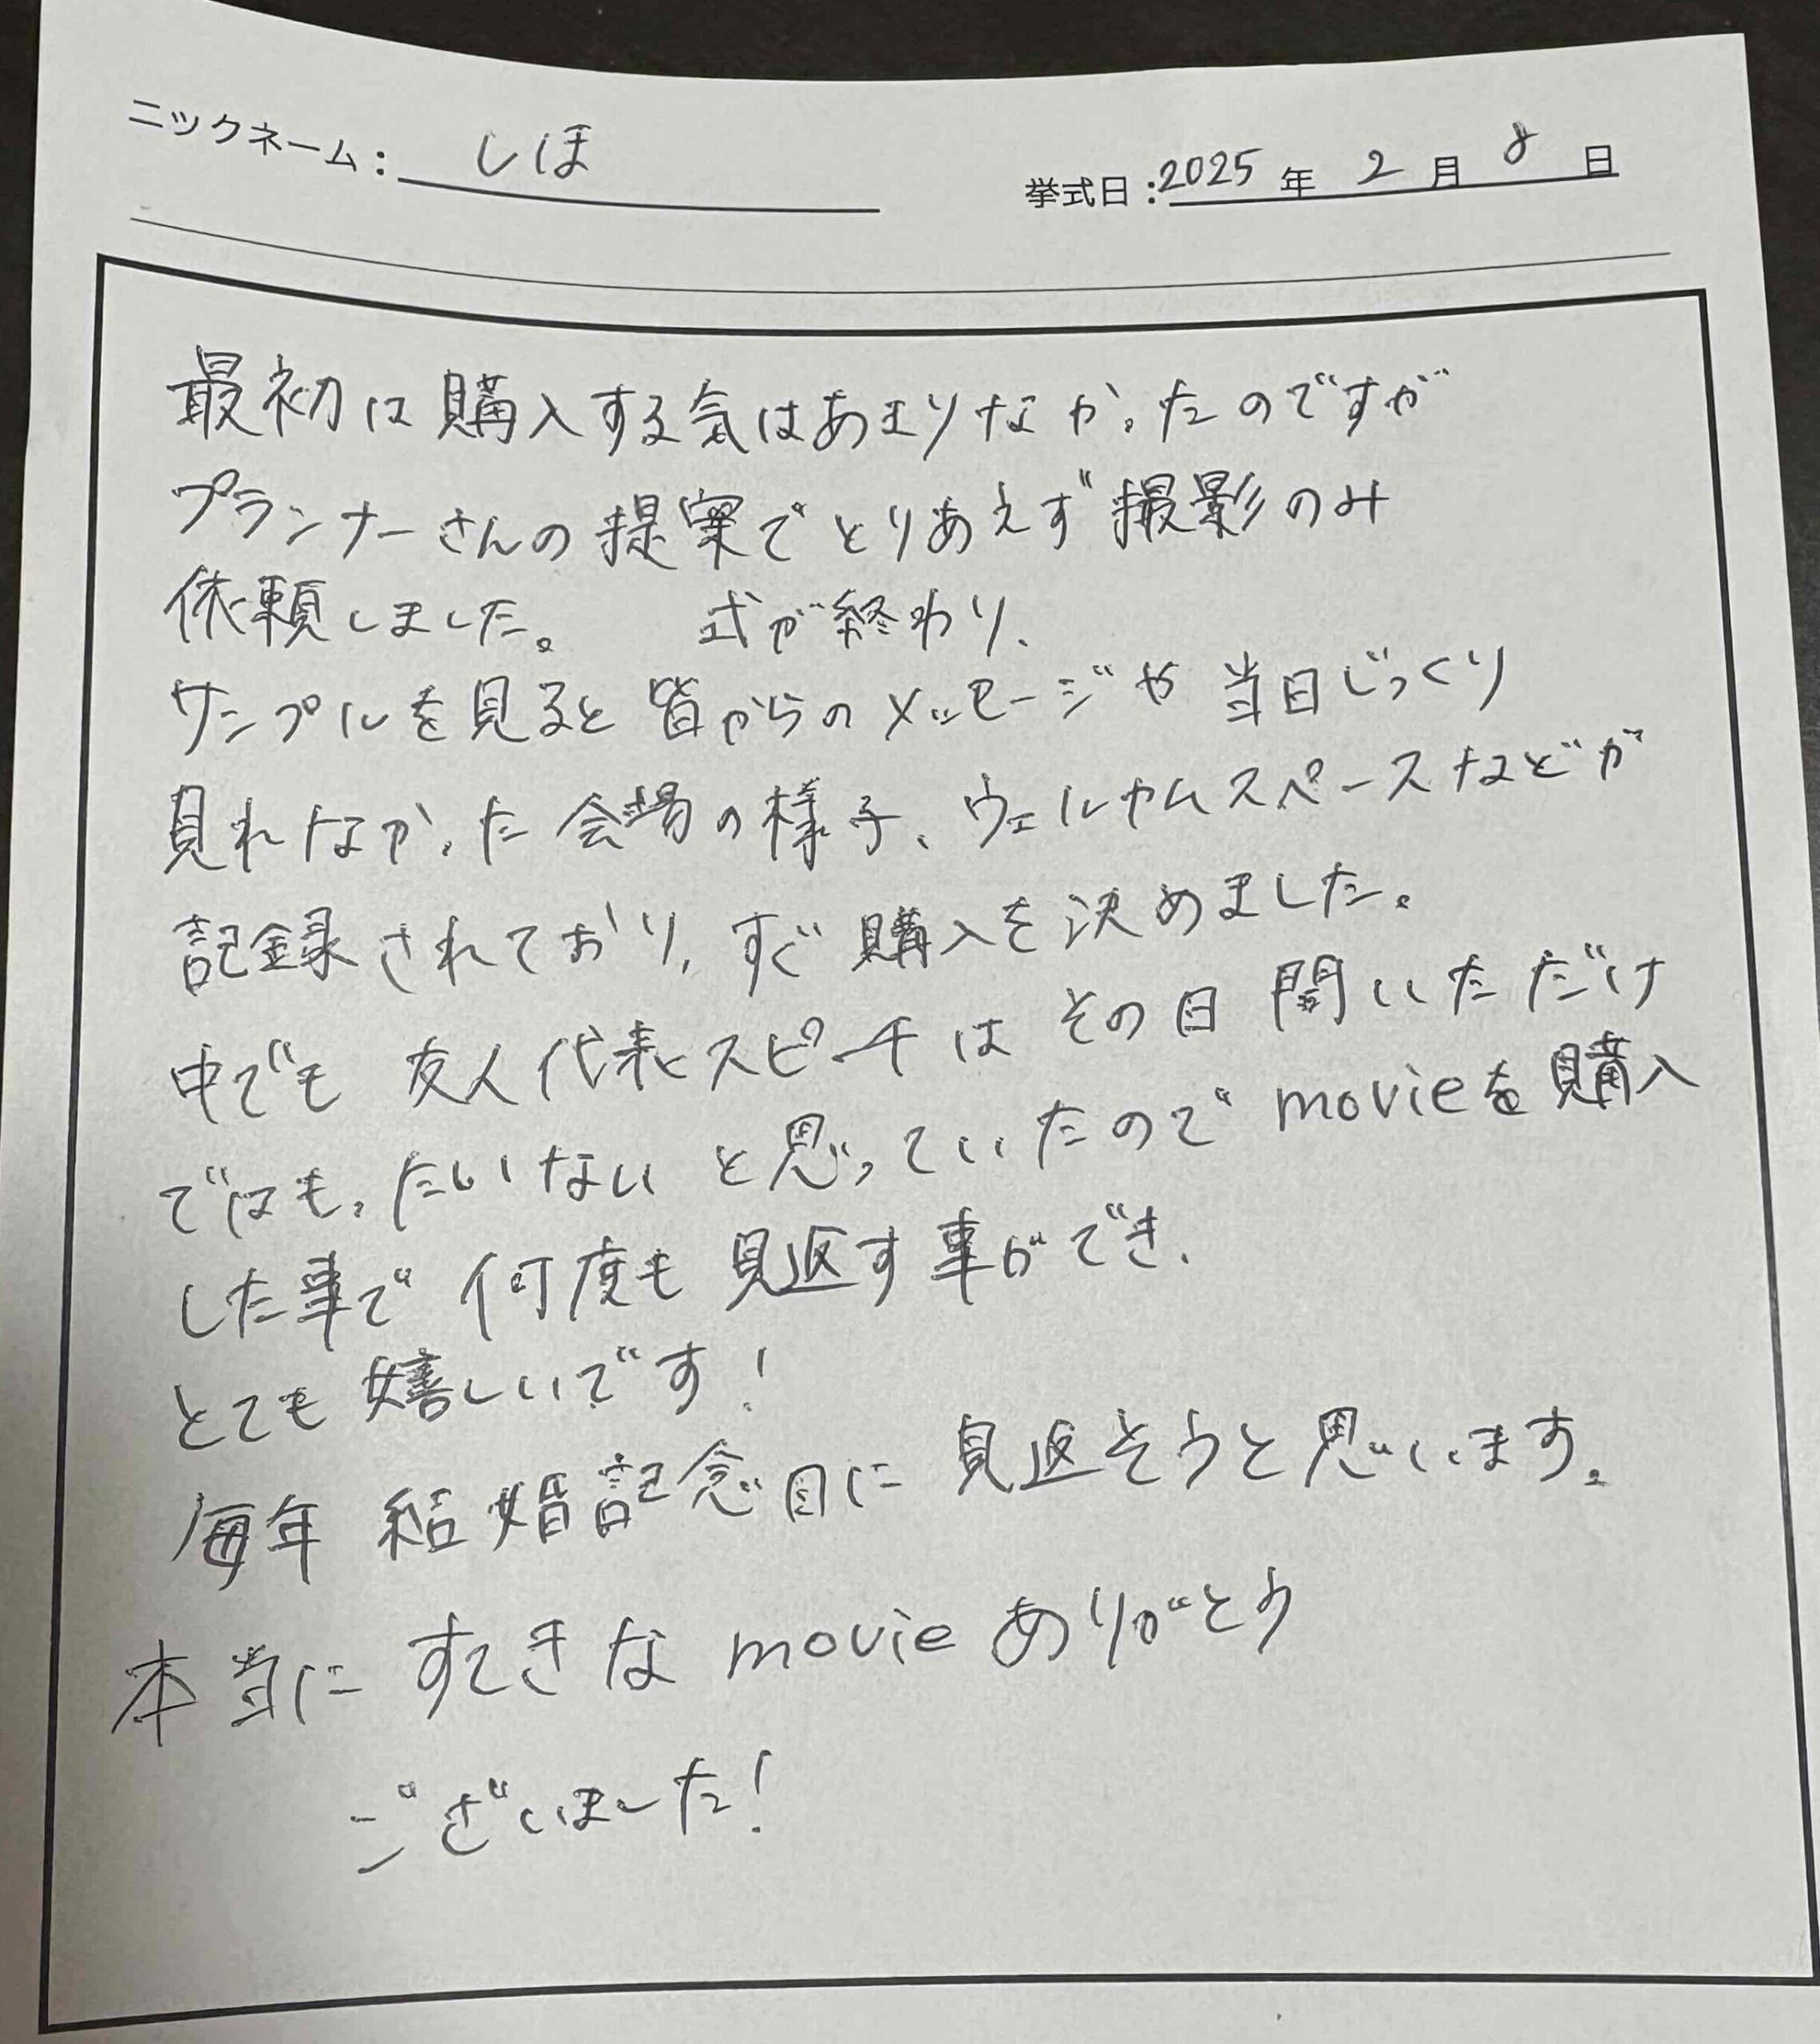 ニックネーム：しほ
挙式日：2025年2月8日
最初は購入する気はあまりなかったのですが
プランナーさんの提案でとりあえず撮影のみ
依頼しました。 式が終わり、
サンプルを見ると皆からのメッセージや当日じっくり
見れなかった会場の様子、ウェルカムスペースなどが
記録されており、すぐ購入を決めました。
中でも 友人代表スピーチは その日 聞いただけ
ではもったいない と思っていたので movieを購入
した事で 何度も 見返す事ができ、
とても嬉しいです！
毎年 結婚記念日に 見返そうと思います。
本当に すてきな movie ありがとう
ございました！